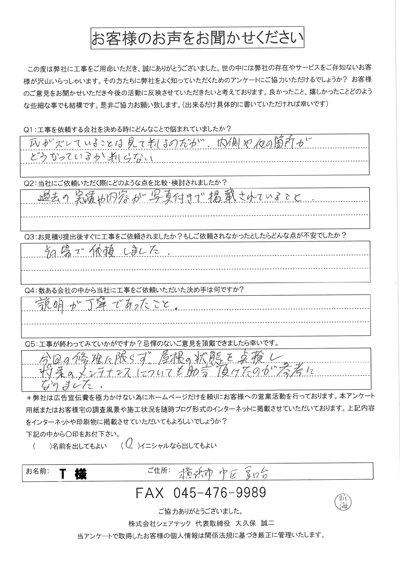 お客様のお声をお聞かせください
この度は弊社に工事をご用命いただき、誠にありがとうございました。世の中には弊社の存在やサービスをご存知ないお客
様が沢山いらっしゃいます。その方たちに弊社をよく知っていただくためのアンケートにご協力いただけるでしょうか? お客様
のご意見をお聞かせいただき今後の活動に反映させていただきたいと考えております。良かったこと、嬉しかったことどのよう
な些細な事でも結構です。是非ご協力お願い致します。(出来るだけ具体的に書いていただければ幸いです)
Q1:工事を依頼する会社を決める時にどんなことで悩まれていましたか?
瓦がズレていることは見て判るのだが、内側や他の箇所が
どうなっているか判らない
Q2:当社にご依頼いただく際にどのような点を比較・検討されましたか?
過去の実績や内容が写真付きで掲載されていること。
Q3:お見積り提出後すぐに工事をご依頼されましたか?もしご依頼されなかったとしたらどんな点が不安でしたか?
で依頼しました。
Q4:数ある会社の中から当社に工事をご依頼いただいた決め手は何ですか?
説明が丁寧であったこと。
Q5:工事が終わってみていかがですか?忌憚のないご意見を頂戴できましたら幸いです。
今回の修理に限らず、屋根の状態を点検し
将来のメンテナンスについても助言頂けたのが参考に
なりました。
*弊社は広告宣伝費を極力かけない為にホームページだけを頼りにお客様への営業活動を行っております。本アンケート
用紙またはお客様宅の調査風景や施工状況を随時ブログ形式のインターネットに掲載させていただいております。上記内容
をインターネットや印刷物に掲載させていただいてもよろしいでしょうか?
下記の中から○印をお付け下さい。
( )名前を出してもよい (○)イニシャルなら出してもよい
お名前: T 様 ご住所: 横浜市中区
FAX 045-476-9989
ご協力ありがとうございました。
株式会社シェアテック 代表取締役 大久保 誠二
当アンケートで取得したお客様の個人情報は関係法規に基づき厳正に管理いたします。